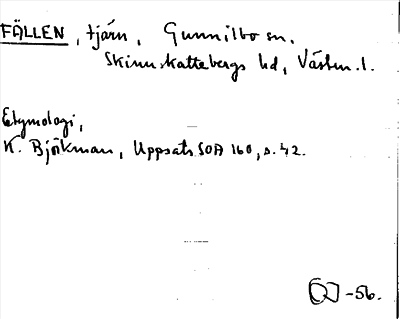 FÄLLEN, tjärn, Gunnilbo sn.
Skinnskattebergs hd, Västm. l.
Etymologi,
K. Björkman, Uppsats SOA 160, s. 42.
-56.